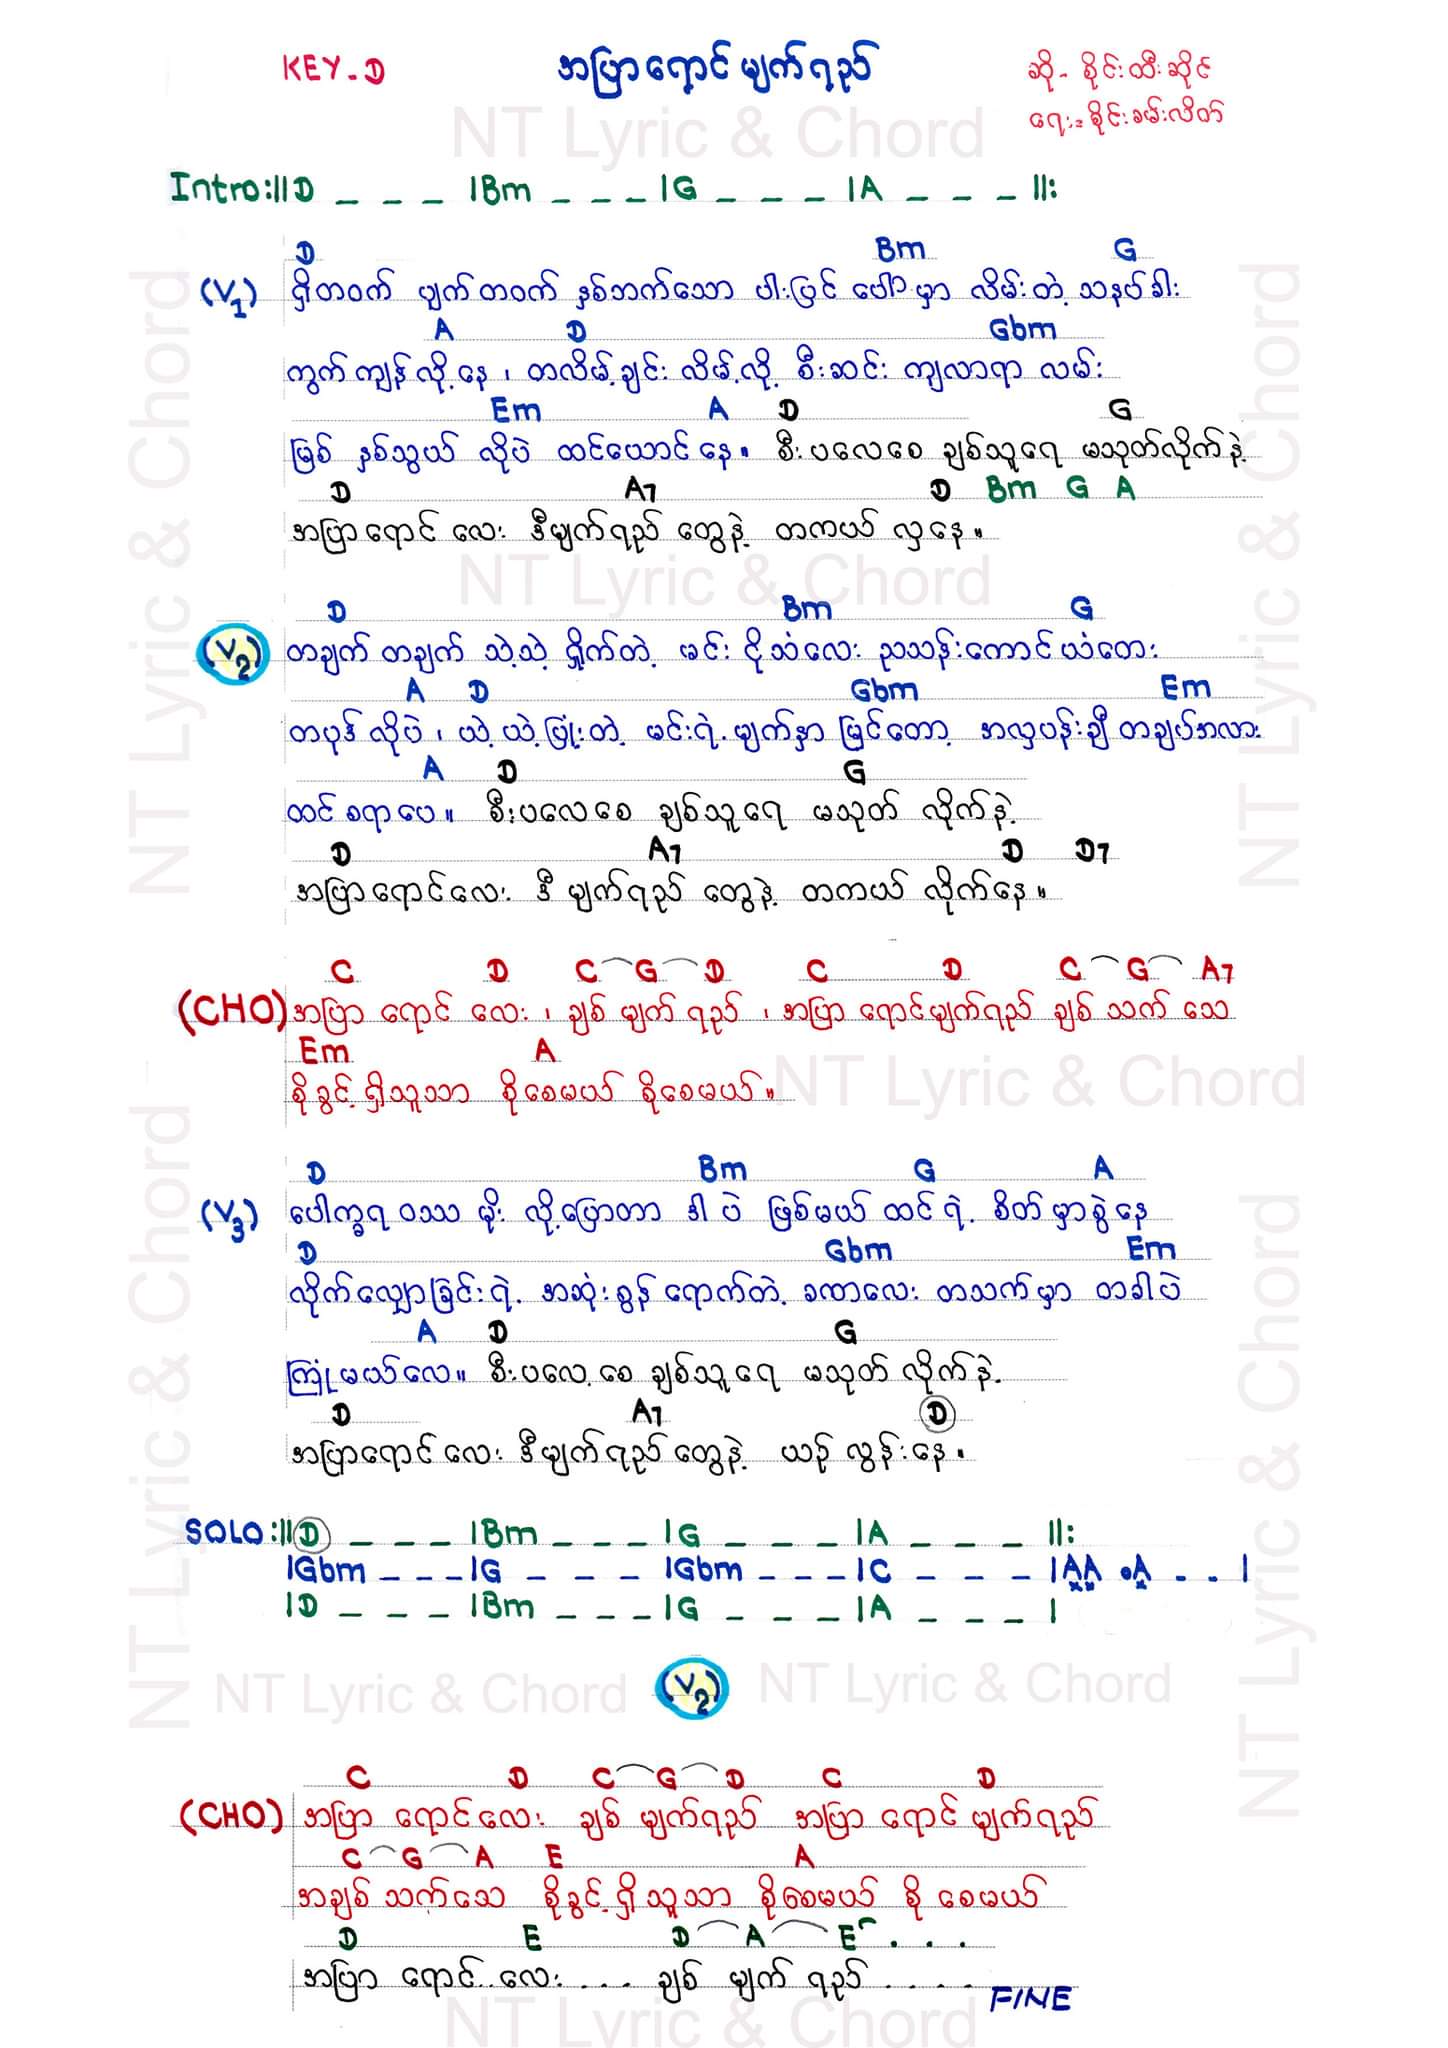 KEY-D
အပြာရောင် မျက်ရည်
ဆို - စိုင်းထီးဆိုင်
ရေး = စိုင်းခမ်းလိတ်
NT Lyric & Chord
Intro:||D _ _ _ |Bm _ _ _ |G _ _ _ |A _ _ _ ||:
D Bm G
(V1) ရှိတဝက် မျက်တဝက် နှစ်ဘက်သော ပါးပြင် ပေါ်မှာ လိမ်းတဲ့ သနပ်ခါး
A D Gbm
ကွက်ကျန်လို့နေ ၊ တလိမ့်ချင်း လိမ့်လို့ စီးဆင်း ကျလာရာ လမ်း
Em A D G
မြစ် နှစ်သွယ် လိုပဲ ထင်ယောင်နေ။ စီးပလေစေ ချစ်သူရေ မသုတ်လိုက်နဲ့
D A7 D Bm G A
အပြာရောင် လေး ဒီမျက်ရည် တွေနဲ့ တကယ် လှနေ။
NT Lyric & Chord
D Bm G
(V2) တချက် တချက် သဲ့သဲ့ ရှိုက်တဲ့ မင်း ငိုသံလေး ညသန်းကောင်ယံတေး
A D Gbm Em
တပုဒ်လိုပဲ ၊ ယဲ့ယဲ့ပြုံးတဲ့ မင်းရဲ့ မျက်နှာ မြင်တော့ အလှပန်းချီ တချပ်အလား
A D G
ထင်စရာပေ။ စီးပလေစေ ချစ်သူရေ မသုတ် လိုက်နဲ့
D A7 D D7
အပြာရောင်လေး ဒီ မျက်ရည် တွေနဲ့ တကယ် လိုက်နေ။
C D C G D C D C G A7
(CHO) အပြာ ရောင် လေး ၊ ချစ် မျက် ရည် ၊ အပြာ ရောင်မျက်ရည် ချစ် သက် သေ
Em A
စိုခွင့်ရှိသူသာ စိုစေမယ် စိုစေမယ်။
NT Lyric & Chord
D Bm G A
(V3) ပေါက္ခရ ဝဿ မိုး လို့ပြောတာ ဒါပဲ ဖြစ်မယ် ထင်ရဲ့ စိတ်မှာစွဲနေ
D Gbm Em
လိုက်လျှောခြင်းရဲ့ အဆုံးစွန်ရောက်တဲ့ ခဏလေး တသက်မှာ တခါပဲ
A D G
ကြုံမယ်လေ။ စီးပလေ့စေ ချစ်သူရေ မသုတ် လိုက်နဲ့
D A7 D
အပြာရောင်လေး ဒီမျက်ရည်တွေနဲ့ ယဉ် လွန်းနေ။
SOLO:||D _ _ _ |Bm _ _ _ |G _ _ _ |A _ _ _ ||:
|Gbm _ _ _ |G _ _ _ |Gbm _ _ _ |C _ _ _ |AA .A . . |
|D _ _ _ |Bm _ _ _ |G _ _ _ |A _ _ _ |
NT Lyric & Chord (V2) NT Lyric & Chord
C D C G D C D
(CHO) အပြာ ရောင်လေး ချစ် မျက်ရည် အပြာ ရောင် မျက်ရည်
C G A E A
အချစ် သက်သေ စိုခွင့်ရှိသူသာ စိုစေမယ် စို စေမယ်
D E D A E . . .
အပြာ ရောင်..လေး . . . ချစ် မျက် ရည် . . . .
FINE
NT Lyric & Chord
NT Lyric & Chord
NT Lyric & Chord
NT Lyric & Chord
NT Lyric & Chord